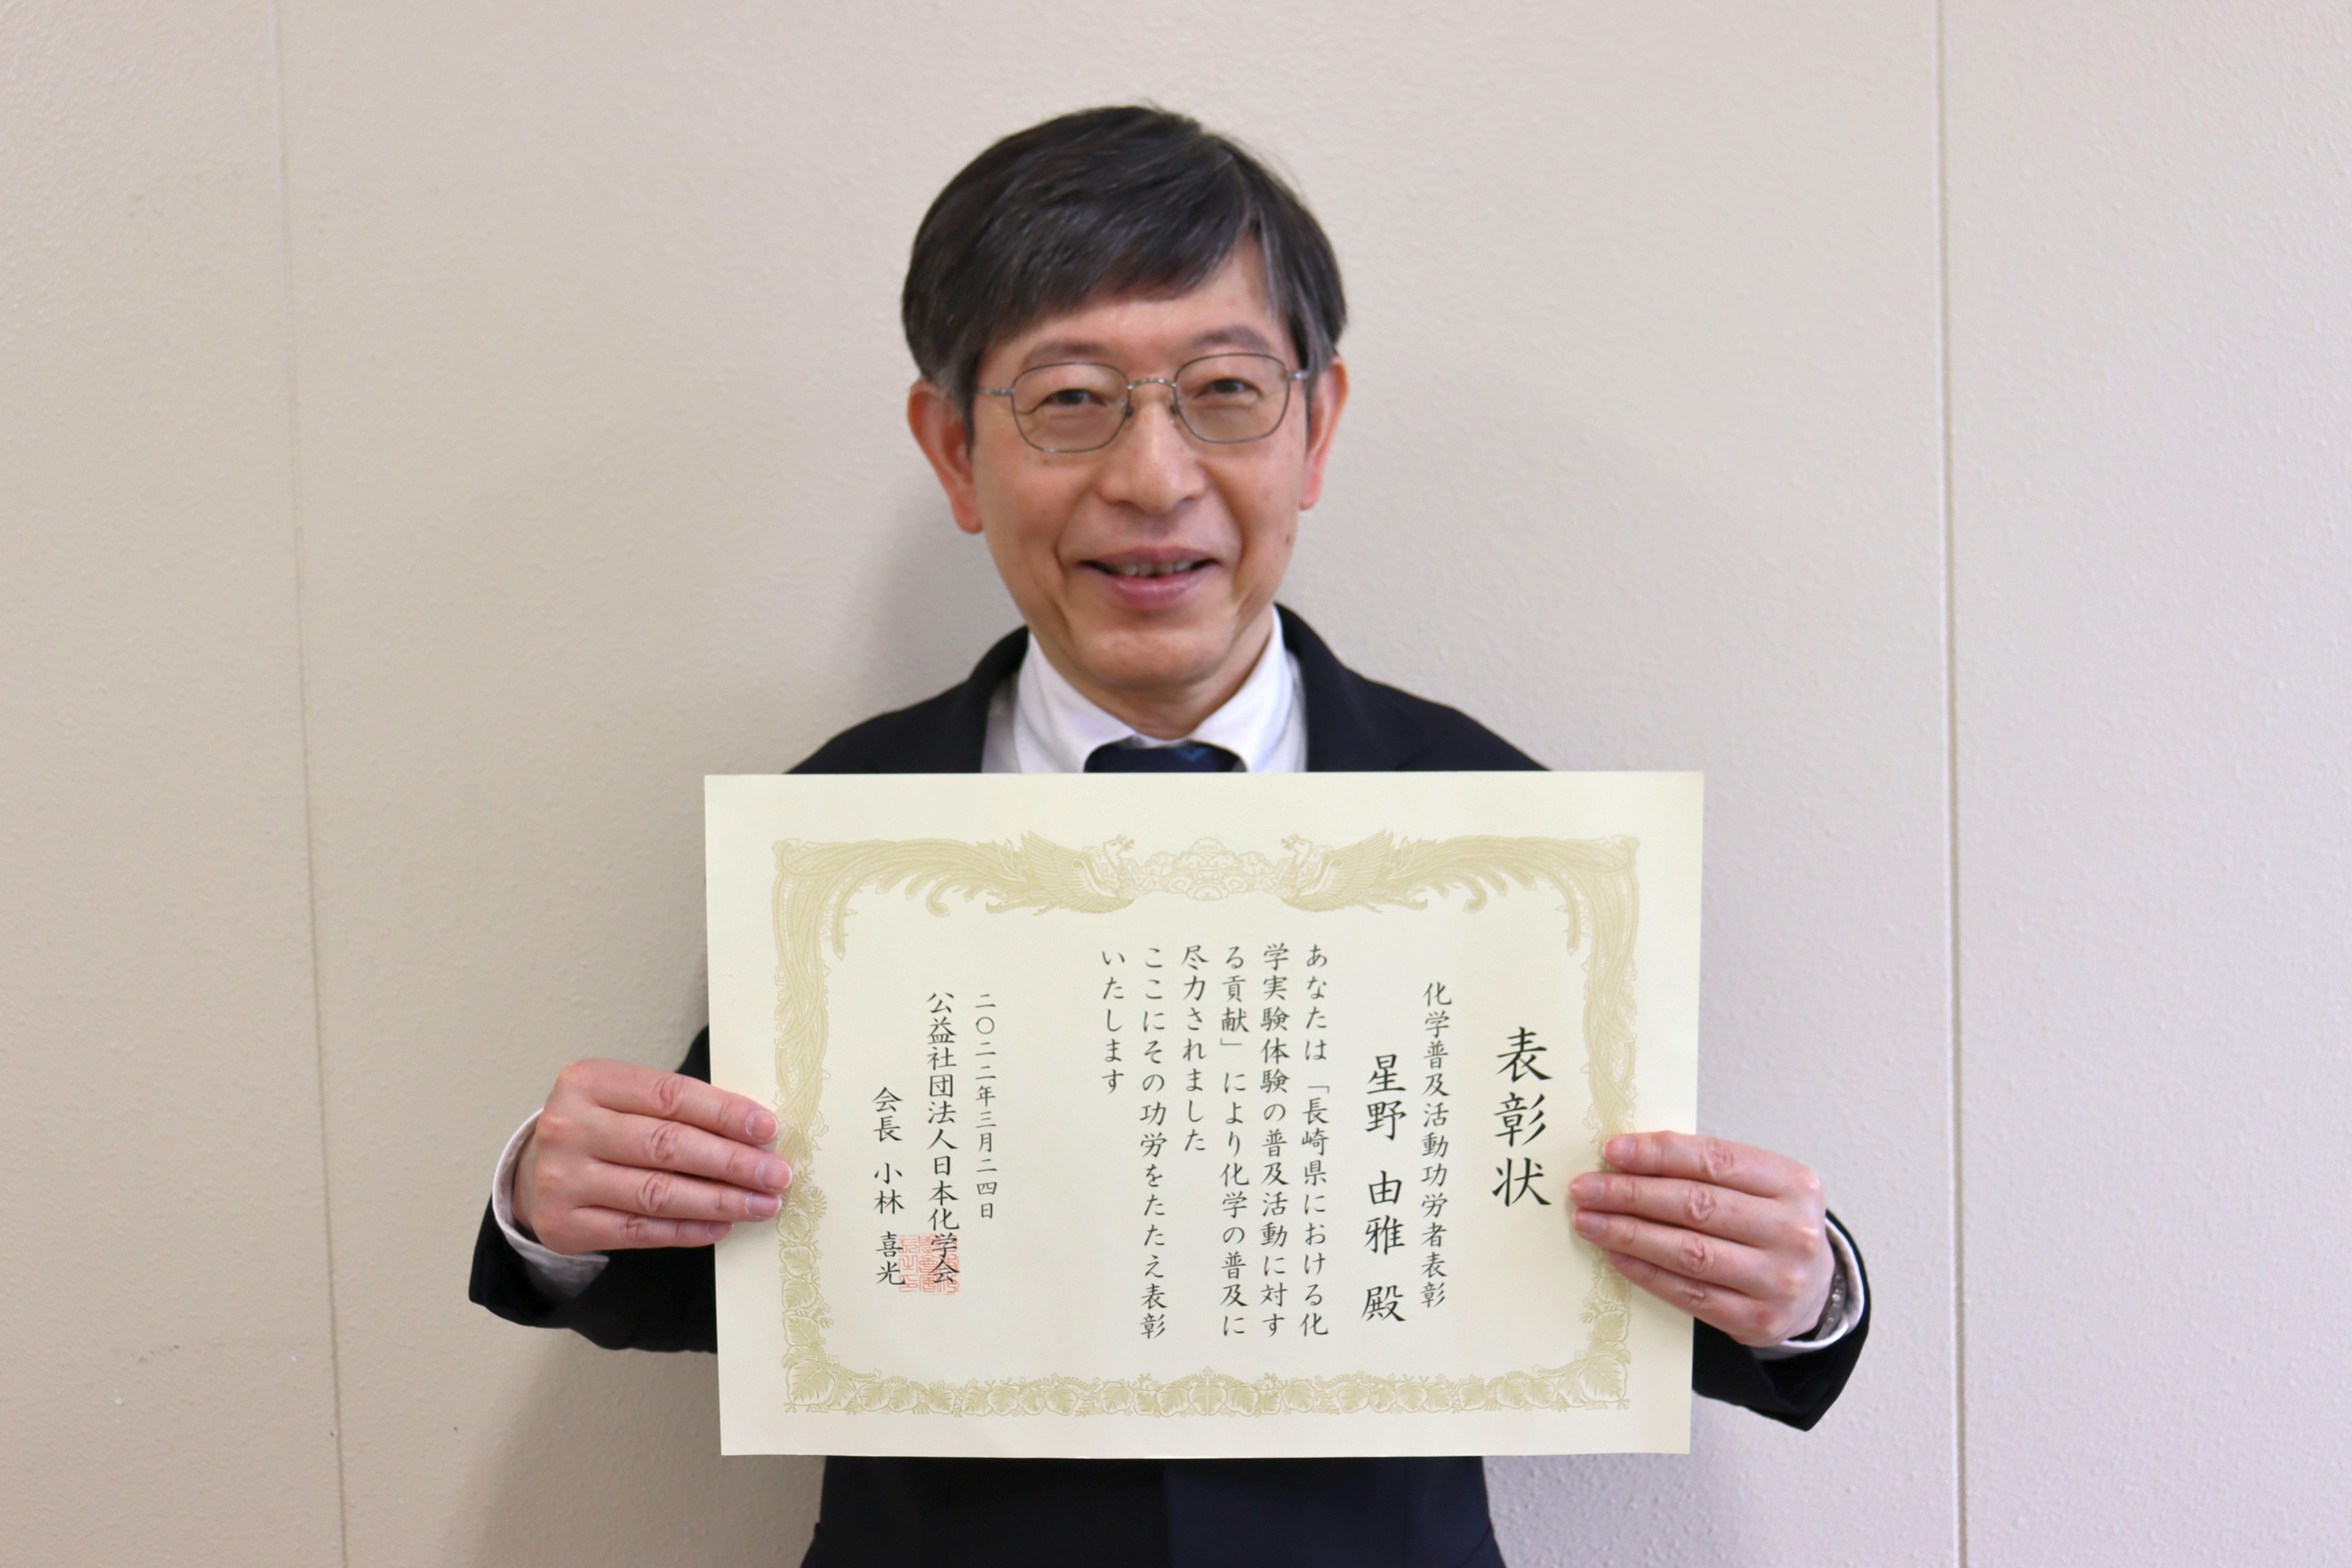 表彰状
化学普及活動功労者表彰
星野 由雅 殿
あなたは「長崎県における化
学実験体験の普及活動に対す
る貢献」により化学の普及に
尽力されました
ここにその功労をたたえ表彰
いたします
二〇二二年三月二四日
公益社団法人日本化学会
会長 小林 喜光